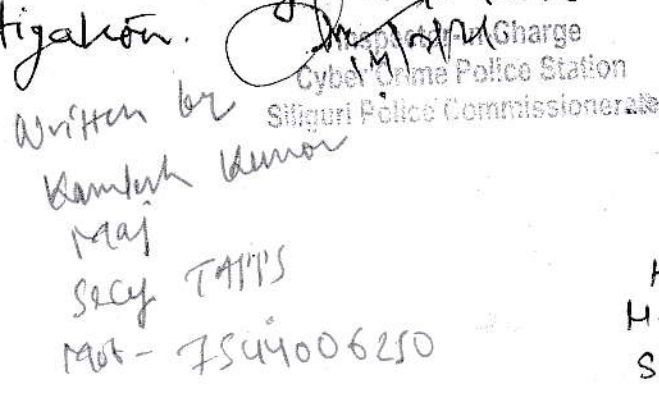 tigation.
Inspector-in-Charge
Cyber Crime Police Station
Siliguri Police Commissionerate
Written by
Kamlesh Kumar
Maj
Secy TAPPS
Mob- 7544006250
H
S